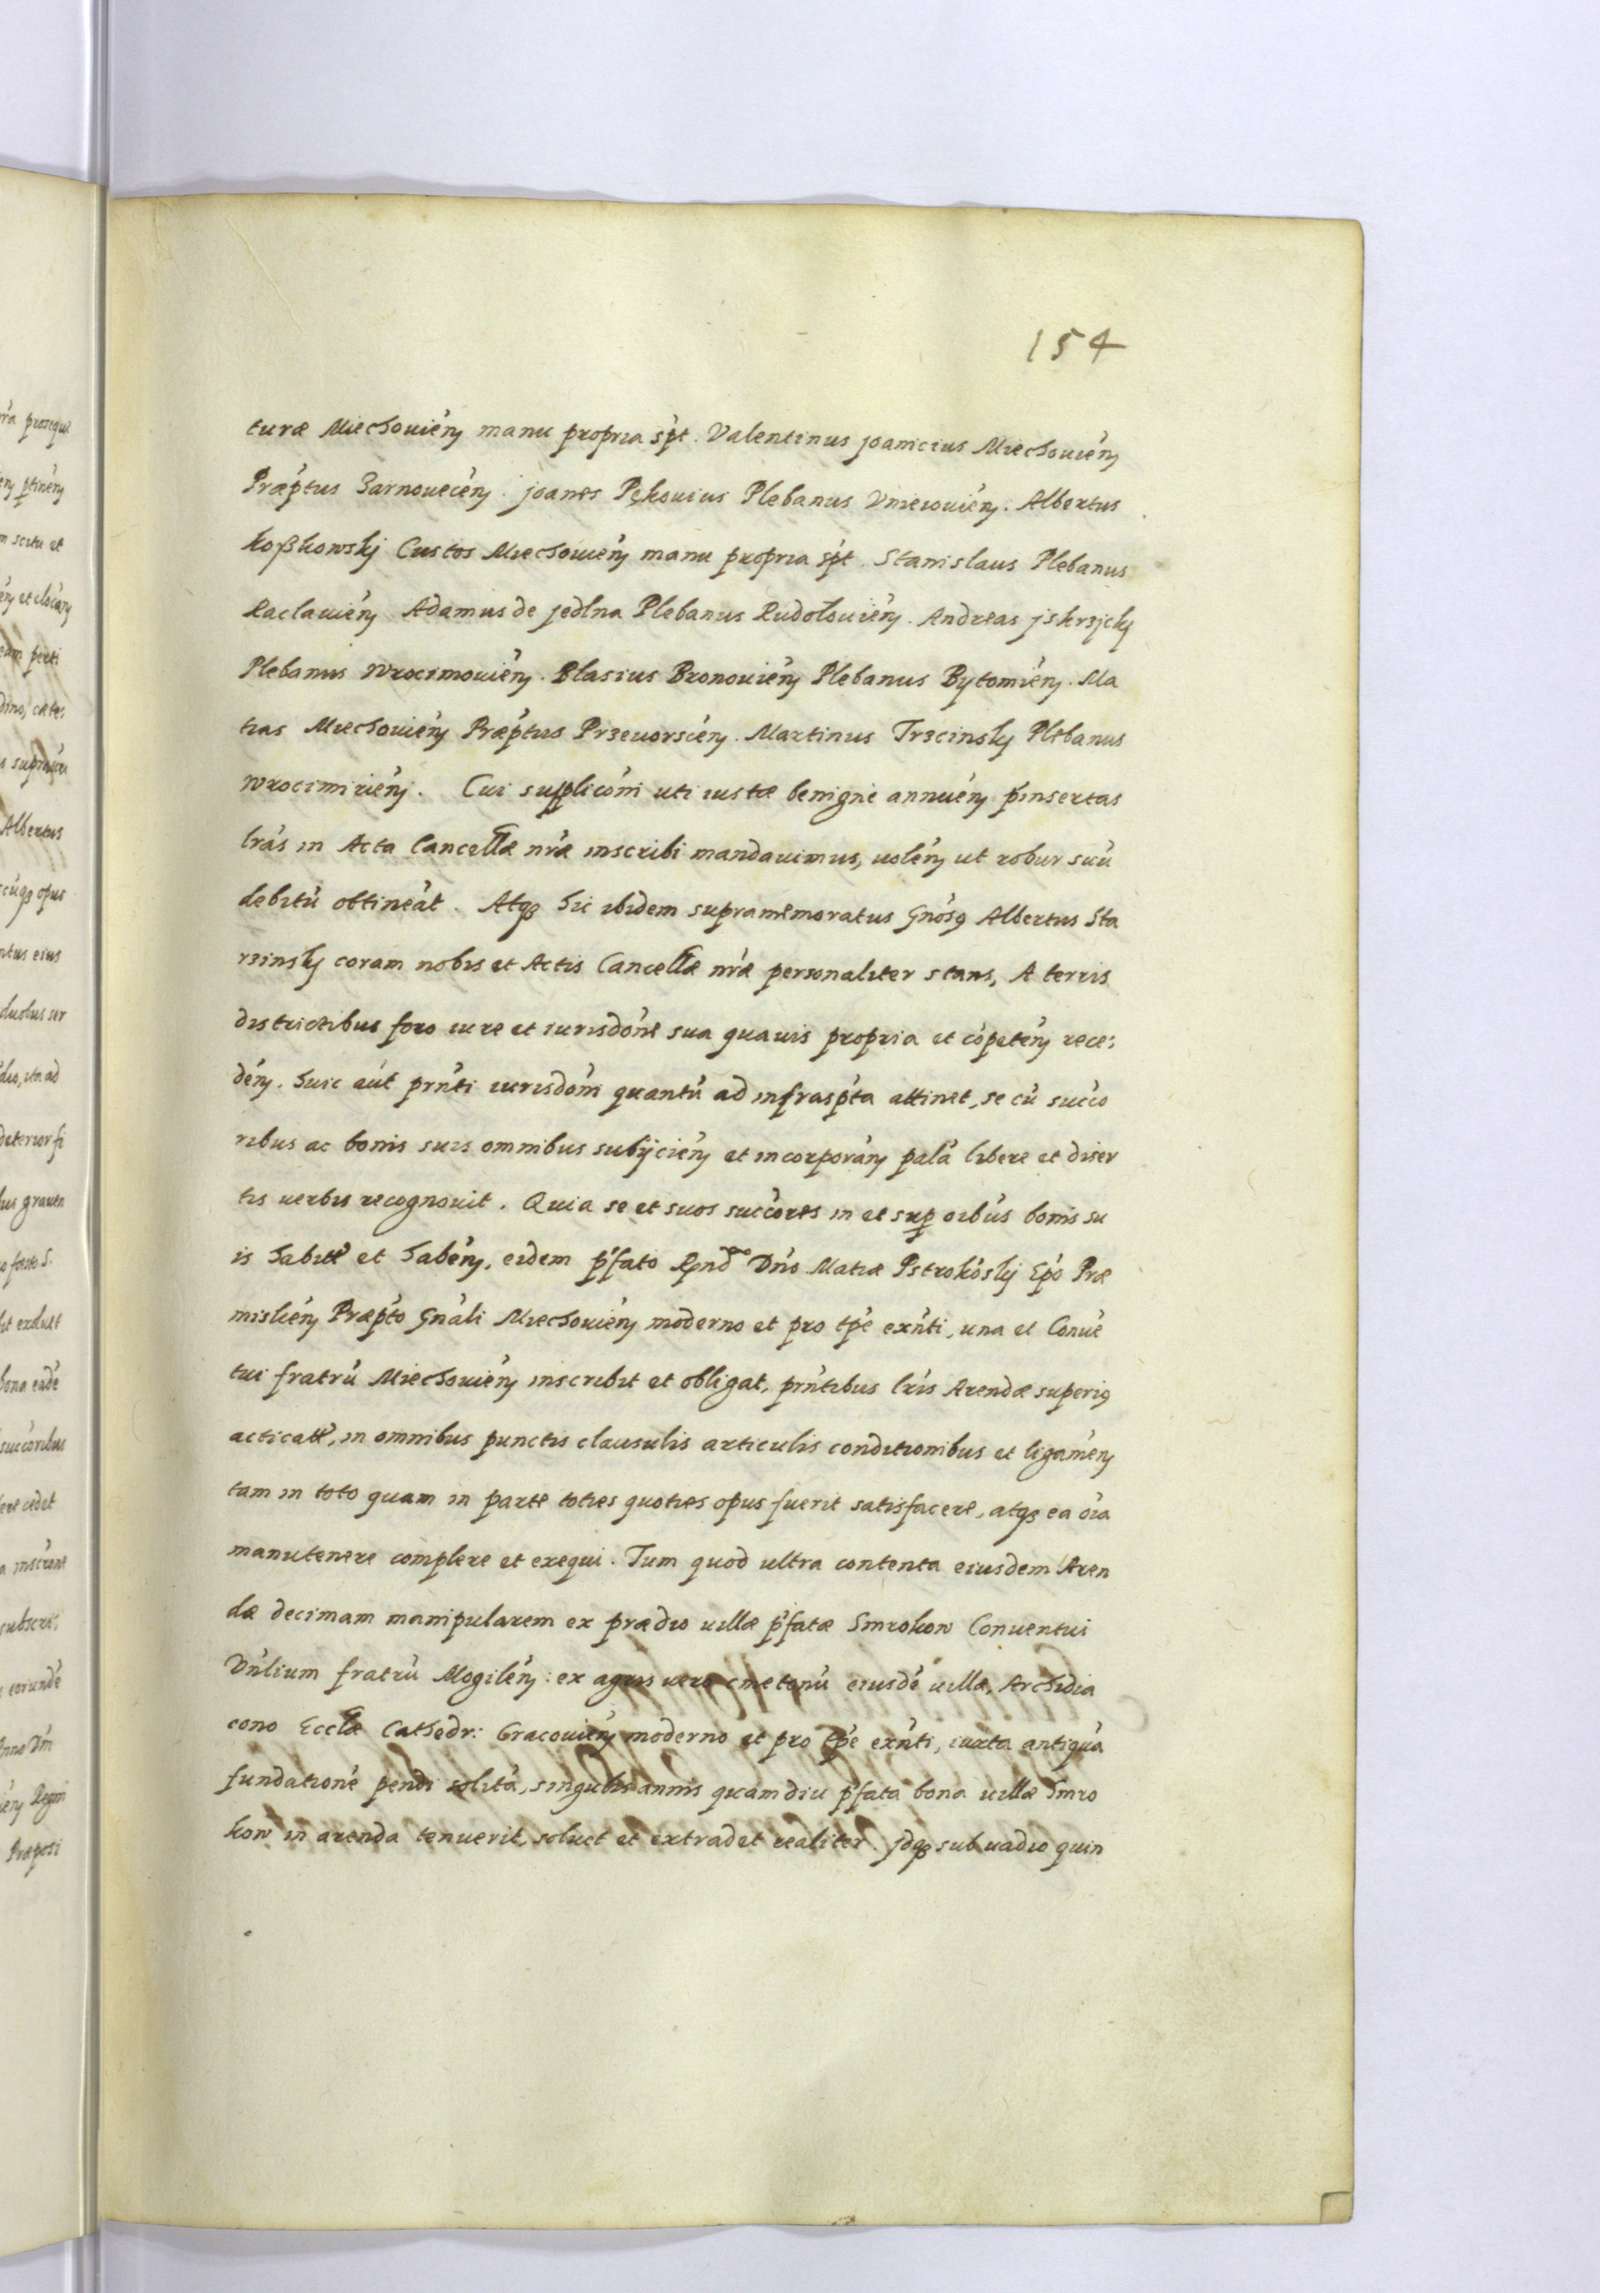 154
turæ Miechouień manu propria śpt. Valentinus joanicius Miechouień
Præṕtus Zarnoueceń. joanes Pękouius Plebanus Vnieiouień. Albertus
koßkowskj Custos Miechouień manu propria śpt. Stanislaus Plebanus
Raclauień Adamus de jedlna Plebanus Rudołouień. Andreas jskrzjckj
Plebanus Wrocimouień. Blasius Bronouień Plebanus Bytomień. Ma
tias Miechouień Præṕtus Przeuorsceń. Martinus Trzcinskj Plebanus
Wrocimirień. Cui supplicóni uti iustæ benigne annueń ṕinsertas
lrás in Acta Cancellæ nræ inscribi mandauimus, uoleń ut robur suú
debitú obtineát. Atqz hic ibidem supramemoratus Gnósq Albertus Sta
rzinskj coram nobis et Actis Cancellæ nræ personaliter stans, A terris
districtibus foro iure et iurisdóne sua quauis propria et cópeteń rece:
deń. huic aút prńti iurisdóni quantú ad infrasṕta attinet, se cú succo
ribus ac bonis suis omnibus subijcień et incorporań palá libere et diser
tis uerbis recognouit. Quia se et suos succóres in et sup oibús bonis su
is habitt et habeń, eidem ṕfato Rndo Dńo Matiæ Pstrokóskj Epó Præ
mislień Præṕto Gnáli Miechouień moderno et pro tpé exńti, una et Conué
tui fratrú Miechouień inscribit et obligat, prńtibus lris Arendæ superiq
acticatt, in omnibus punctis clausulis articulis conditionibus et ligameń
tam in toto quam in parte toties quoties opus fuerit satisfacere, atqz ea oia
manutenere complere et exequi. Tum quod ultra contenta eiusdem Aren
dæ decimam manipularem ex prædio uillæ ṕfatæ Smrokow Conuentui
Vńlium fratrú Mogileń: ex agris uero cmetonú eiusdé uillæ, Archidia
cono Ecclæ Cathedr: Cracouień moderno et pro tpé exńti, iuxta antiquá
fundationé pendi solitá, singulis annis quamdiu ṕfata bona uillæ Smro
kow in arenda tenuerit, soluet et extradet realiter. jdqz sub uadio quin